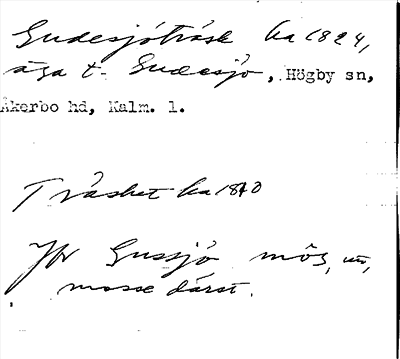 Gudesjöträsk ka 1824,
äga t. Gudesjö, Högby sn,
Åkerbo hd, Kalm. l.
Träsket ka 1840
Jfr Gussjö mös,
mosse därst.